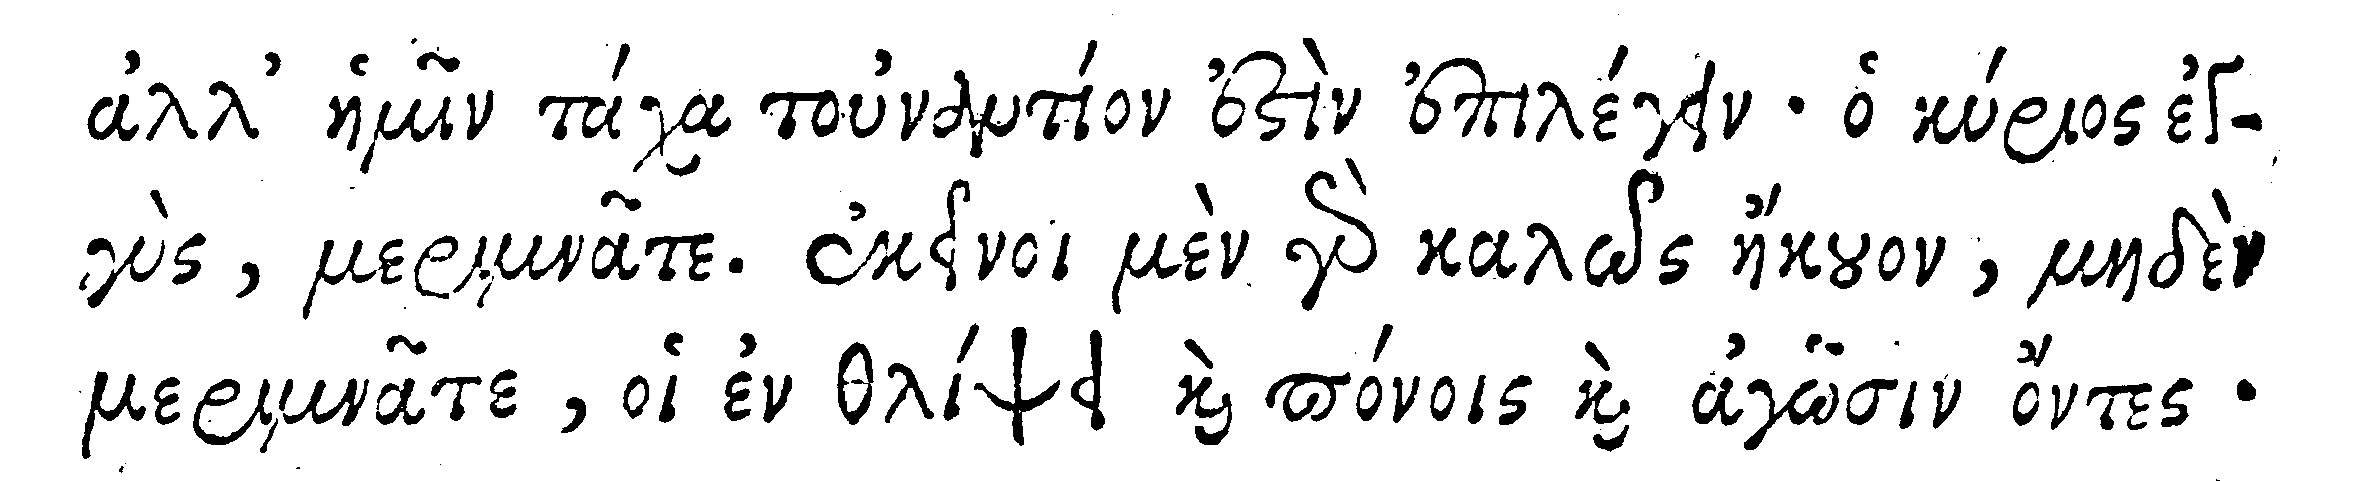 ἀλλ’ ἡμῖν τάχα τοὐναντίον ἐστὶν ἐπιλέγειν· ὁ κύριος ἐγ-
γὺς, μεριμνᾶτε. ἐκεῖνοι μὲν γὰρ καλῶς ἤκουον, μηδὲν
μεριμνᾶτε, οἱ ἐν θλίψει καὶ πόνοις καὶ ἀγῶσιν ὄντες·